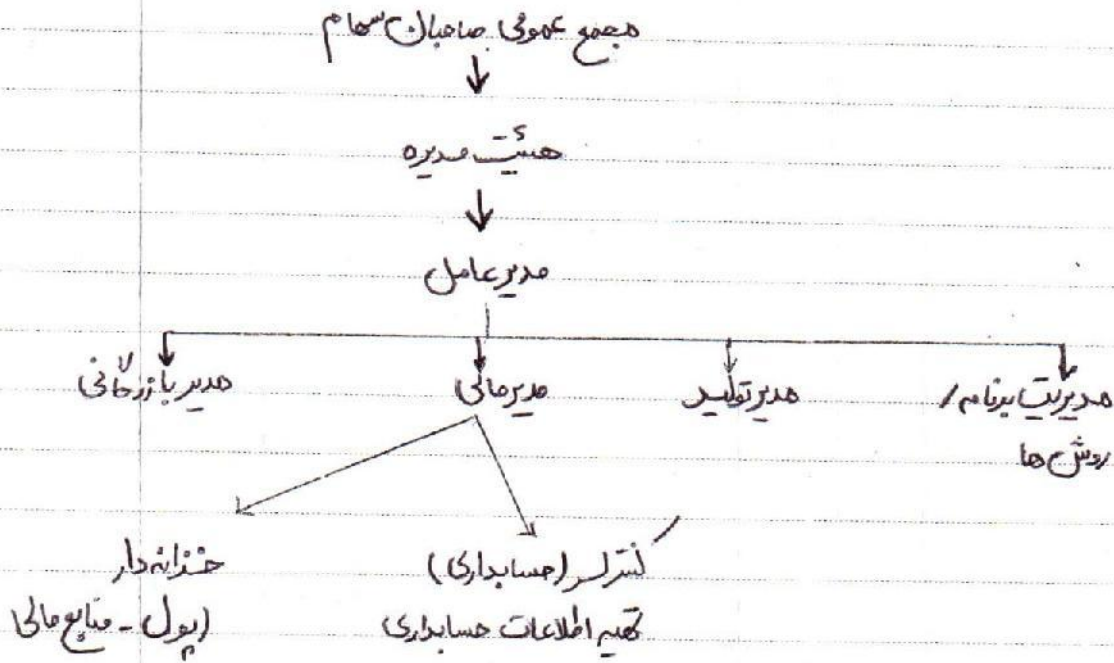 مجمع عمومی صاحبان سهام
هیئت مدیره
مدیر عامل
مدیریت برنامه / مدیر تولید مدیر مالی مدیر بازرگانی
روش ها
کنترلر (حسابداری) خزانه دار
تهیه اطلاعات حسابداری (پول - منابع مالی